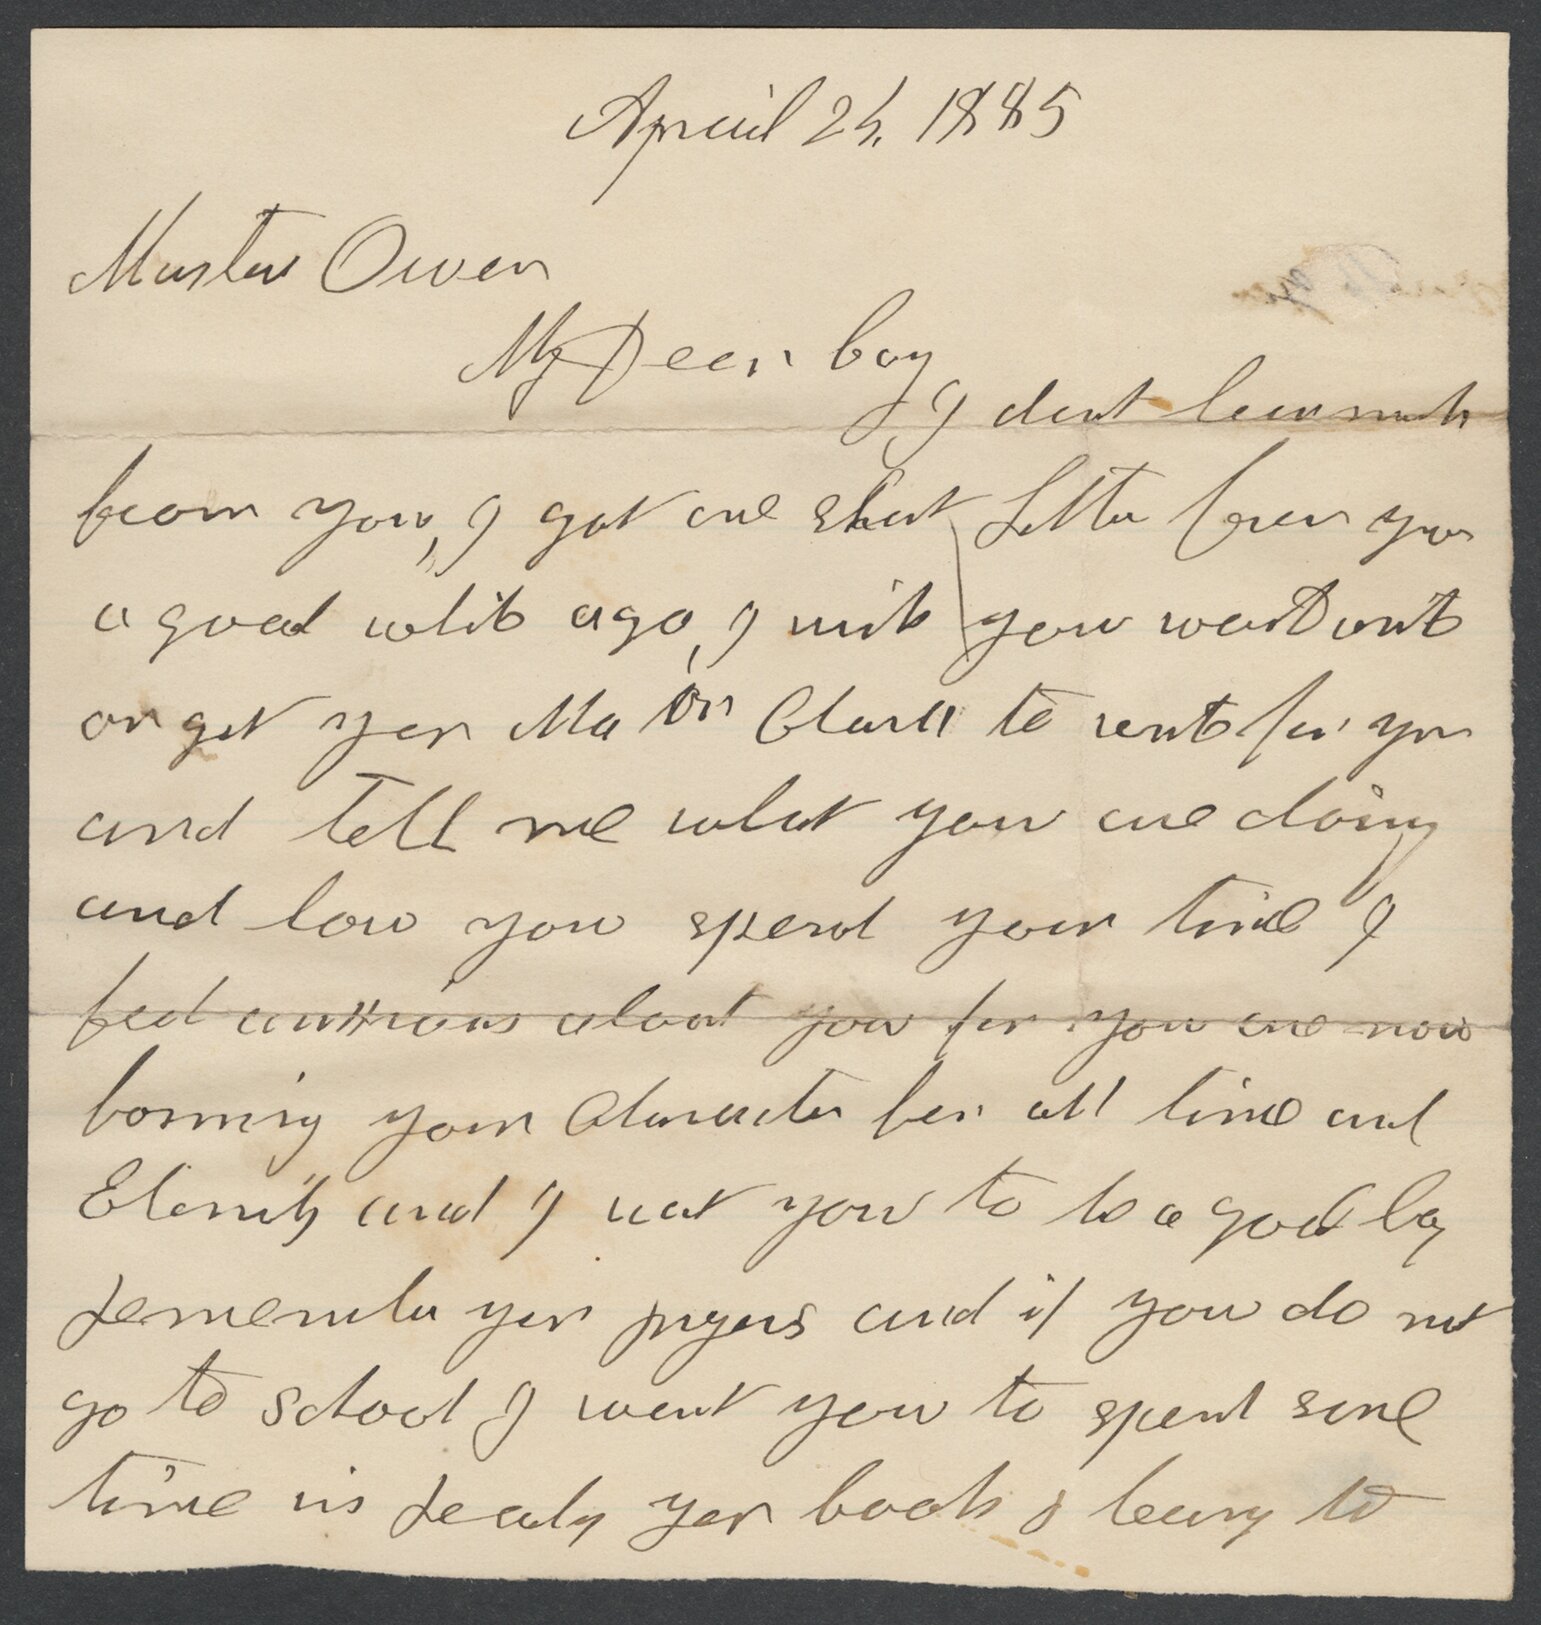 April 25, 1885
Master Owen
My Dear boy
I dont hear much
from you, I got one short Letter from you
a good while ago, I wish you would write
or get your Ma or Clark to write for you
and tell me what you are doing
and how you spend your time I
feel anxious about you for you are now
forming your Character for all time and
Eternity and I want you to be a good boy
remember your prayers and if you do not
go to school I want you to spend some
time in ready your book & learng to